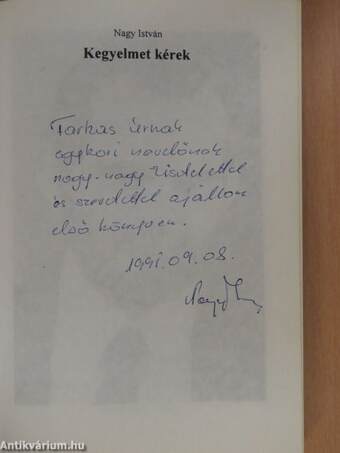 Nagy István
Kegyelmet kérek
Farkas úrnak
egykori nevelőnek
nagy-nagy tisztelettel
és szeretettel ajánlom
első könyvem.
1991.09.08.
Antikvárium.hu